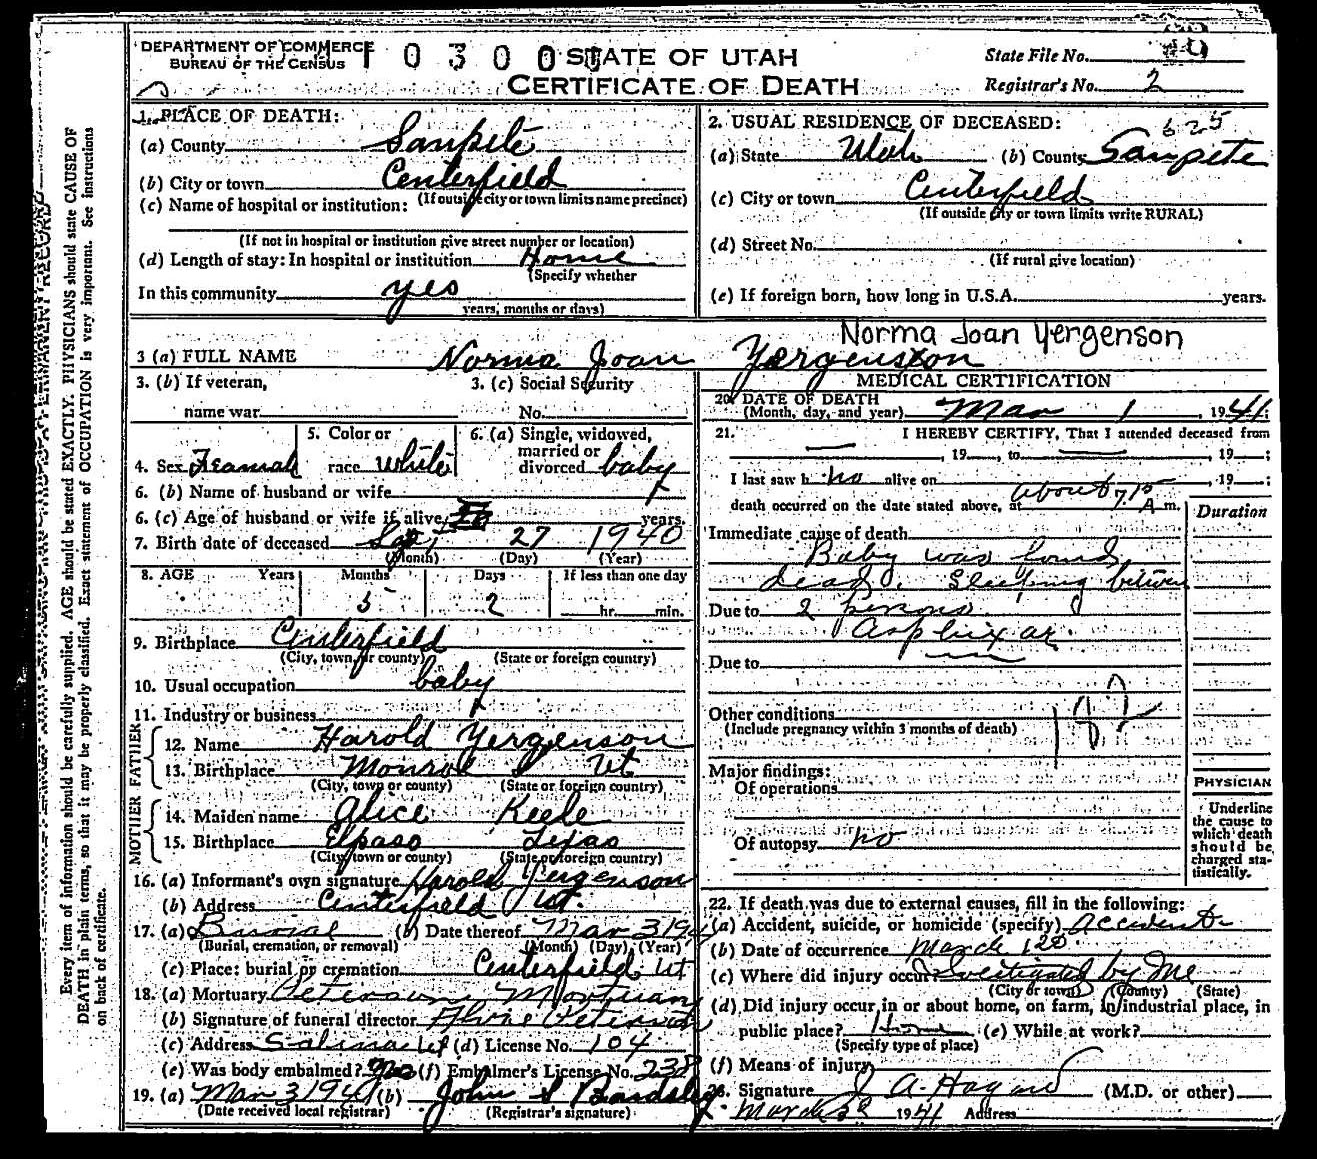 DEPARTMENT OF COMMERCE
BUREAU OF THE CENSUS
1 0 3 0 0
STATE OF UTAH
CERTIFICATE OF DEATH
State File No.
Registrar's No. 2
1. PLACE OF DEATH:
(a) County Sanpete
(b) City or town Centerfield
(If outside city or town limits name precinct)
(c) Name of hospital or institution:
(If not in hospital or institution give street number or location)
(d) Length of stay: In hospital or institution Home
(Specify whether
In this community yes
years, months or days)
2. USUAL RESIDENCE OF DECEASED:
625
(a) State Utah (b) County Sanpete
(c) City or town Centerfield
(If outside city or town limits write RURAL)
(d) Street No.
(If rural give location)
(e) If foreign born, how long in U.S.A. years.
Norma Joan Yergenson
3 (a) FULL NAME Norma Joan Yergenson
3. (b) If veteran,
name war
3. (c) Social Security
No.
4. Sex Feamal
5. Color or
race White
6. (a) Single, widowed,
married or
divorced baby
6. (b) Name of husband or wife
6. (c) Age of husband or wife if alive years.
7. Birth date of deceased Sept 27 1940
(Month) (Day) (Year)
8. AGE Years Months Days If less than one day
5 2 hr. min.
9. Birthplace Centerfield
(City, town, or county) (State or foreign country)
10. Usual occupation baby
11. Industry or business
FATHER
12. Name Harold Yergenson
13. Birthplace Monroe Ut
(City, town or county) (State or foreign country)
MOTHER
14. Maiden name Alice Keele
15. Birthplace Elpaso Texas
(City, town or county) (State or foreign country)
16. (a) Informant's own signature Harold Yergenson
(b) Address Centerfield Ut.
17. (a) Burial (b) Date thereof Mar 3 194
(Burial, cremation, or removal) (Month) (Day) (Year)
(c) Place: burial or cremation Centerfield Ut
18. (a) Mortuary Peterson Mortuary
(b) Signature of funeral director Peterson
(c) Address Salina Ut (d) License No. 104
(e) Was body embalmed? (f) Embalmer's License No. 238
19. (a) Mar 3 1941 (b) John S Bardsley
(Date received local registrar) (Registrar's signature)
MEDICAL CERTIFICATION
20. DATE OF DEATH
(Month, day, and year) Mar 1, 1941;
21. I HEREBY CERTIFY, That I attended deceased from
, 19 , to , 19 ;
I last saw h no alive on , 19 ;
death occurred on the date stated above, at about 7.15 A m.
Duration
Immediate cause of death
Baby was found
dead. Sleeping between
Due to 2 persons
Asphixar
Due to
Other conditions
(Include pregnancy within 3 months of death)
182
Major findings:
Of operations
Of autopsy no
PHYSICIAN
Underline
the cause to
which death
should be
charged sta-
tistically.
22. If death was due to external causes, fill in the following:
(a) Accident, suicide, or homicide (specify) Accident
(b) Date of occurrence March 1
(c) Where did injury occur Investigated by Me
(City or town) (County) (State)
(d) Did injury occur in or about home, on farm, in industrial place, in
public place? Home (e) While at work?
(Specify type of place)
(f) Means of injury
23. Signature J A Hagan (M.D. or other)
March 3 1941 Address
Every item of information should be carefully supplied. AGE should be stated EXACTLY. PHYSICIANS should state CAUSE OF
DEATH in plain terms, so that it may be properly classified. Exact statement of OCCUPATION is very important. See instructions
on back of certificate.